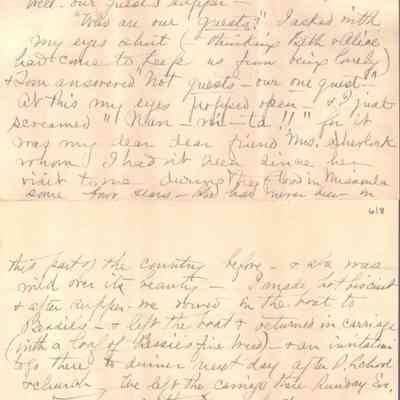 well - our guests supper -
"Who are our guests?" I asked with
my eyes shut (- thinking Beth & Alise
had come to keep us from being lonely)
& Tom answered "Not guests - our one guest" -
At this my eyes "popped open - & I just
screamed "Nan - ni - ta!!" for it
was my dear dear friend Mrs. Sherlock
whom I had n't seen since her
visit to me during the flood in Missoula
some four years - she had never been in
618
this part of the country before - & was
wild over its beauty - I made hot biscuit
& after supper - we rowed in the boat to
Bessie's - & left the boat & returned in carriage
(with a loaf of Bessie's fine bread) - & an invitation
to go there to dinner next day after S. School
& church. We left the carriage there Sunday Eve.